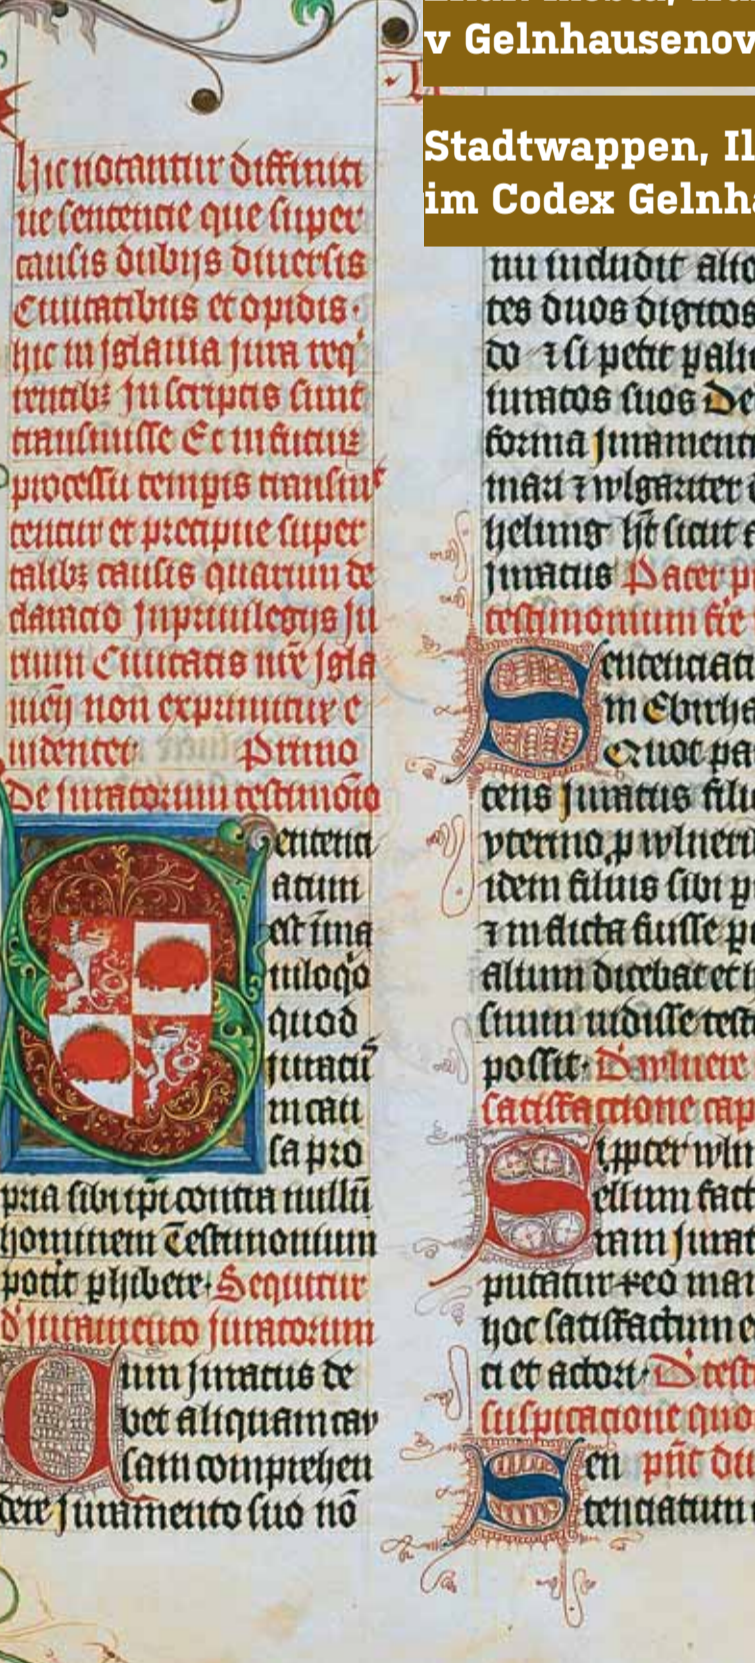 v Gelnhausenov
Stadtwappen, Il
im Codex Gelnha
hic notantur diffiniti
ue sentencie que super
causis dubijs diuersis
Ciuitatibus et opidis
hic in jglauia jura req
rentibꝫ In scriptis sunt
transmisse Et in futurꝫ
processu temꝑis transmit
tentur et precipue super
talibꝫ causis quarum de
claracio Inpriuilegijs Ju
rium Ciuitatis nrē jgla
uien̄ non exprimitur e
uidenter Primo
De juratorum testimōio
Sentenci
atum
est īma
quod
juratū
in cau
sa pro
pria sibi ip̄i contra nullū
hominem Testimonium
potīt ꝑhibere Sequitur
d' juramento juratorum
Cum juratus de
bet aliquam cau
sam comprehen
dere Juramento suo nō
tes duos digitos
do ⁊ si petit ꝑali
iuratos suos De
forma jurament
mari ⁊ wlgariter
helung h̄t sicut
juratus Pater
testimonium
Sentenciat
in
Quot pa
cens Juratus fili
vterino ꝑ wlneri
idem filius sibi
⁊ in dicta fuisse
alium dicebat et
suum vidisse test
possit D' wlnere
satisfactione cap
Sipater wln
ellium fact
ram jurat
putatur reo ma
hoc satisfactum e
ci et actori D' test
suspicacione quo
Sen
tenciatum